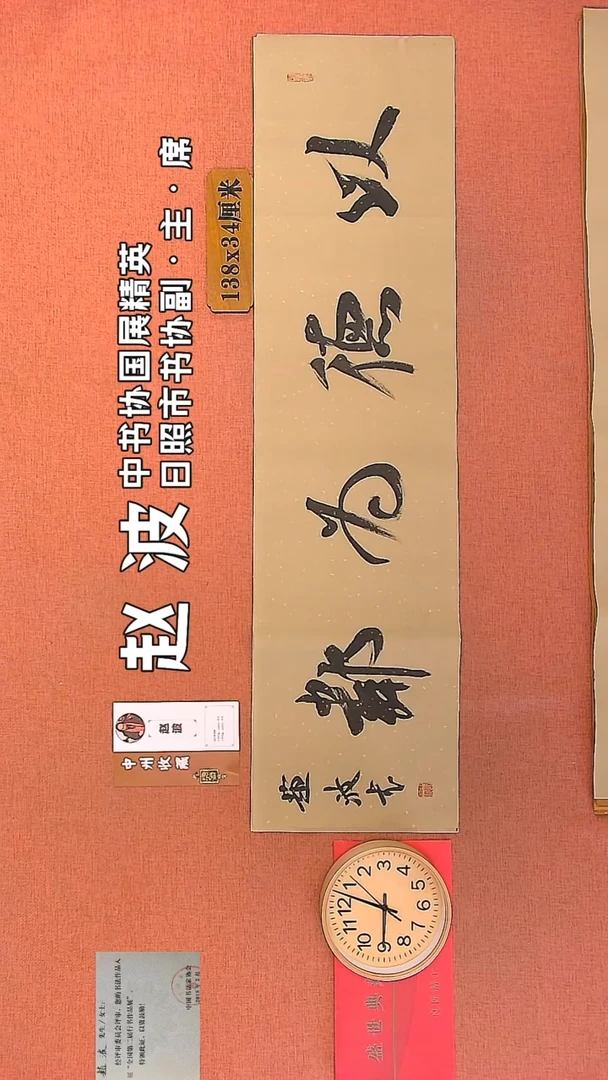 赵波
中书协国展精英
日照市书协副·主·席
138x34厘米
以德为鄰
赵波书
赵波
中州收藏
赵波 先生/女士:
经评审委员会评审，您的书法作品入
展“全国第二届行书作品展”，
特颁此证，以资鼓励!
中国书法家协会
盛世典
12
1
2
3
4
5
6
7
8
9
10
11